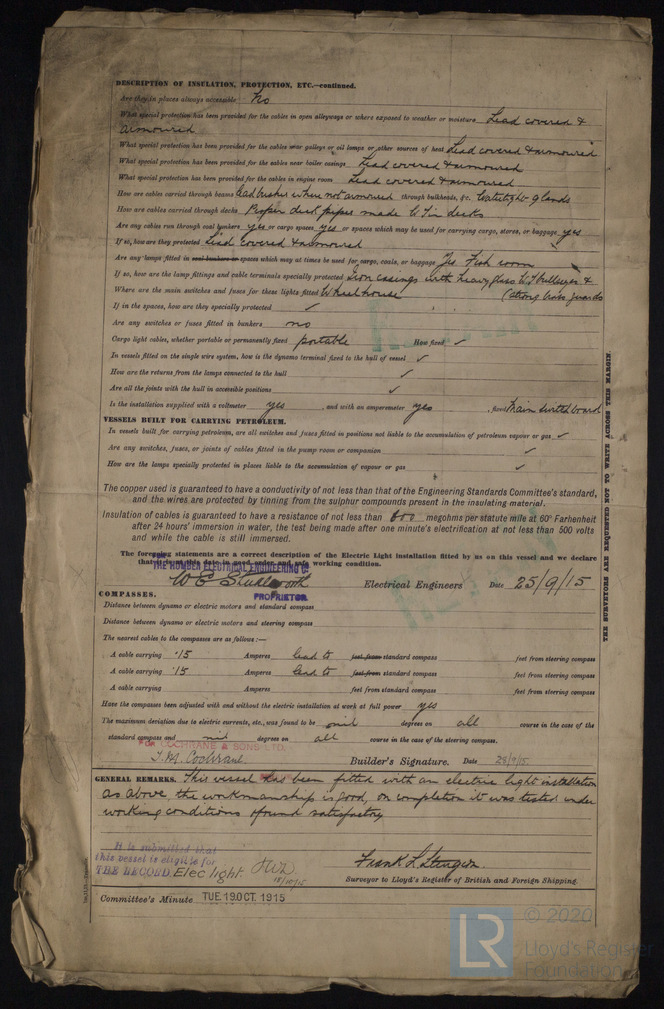 DESCRIPTION OF INSULATION, PROTECTION, ETC.—continued.
Are they in places always accessible No
What special protection has been provided for the cables in open alleyways or where exposed to weather or moisture Lead covered &
armoured
What special protection has been provided for the cables near galleys or oil lamps or other sources of heat Lead covered & armoured
What special protection has been provided for the cables near boiler casings Lead covered & armoured
What special protection has been provided for the cables in engine room Lead covered & armoured
How are cables carried through beams lead bushes where not armoured through bulkheads, &c. Watertight glands
How are cables carried through decks Proper deck pipes made W.T. in decks
Are any cables run through coal bunkers yes or cargo spaces yes or spaces which may be used for carrying cargo, stores, or baggage yes
If so, how are they protected Lead covered & armoured
Are any lamps fitted in coal bunkers or spaces which may at times be used for cargo, coals, or baggage Yes. Fish room
If so, how are the lamp fittings and cable terminals specially protected Iron casings with heavy glass W.T. bullseyes &
Where are the main switches and fuses for these lights fitted Wheelhouse (strong guards
If in the spaces, how are they specially protected ✓
Are any switches or fuses fitted in bunkers no
Cargo light cables, whether portable or permanently fixed portable How fixed ✓
In vessels fitted on the single wire system, how is the dynamo terminal fixed to the hull of vessel ✓
How are the returns from the lamps connected to the hull ✓
Are all the joints with the hull in accessible positions ✓
Is the installation supplied with a voltmeter yes , and with an amperemeter yes , fixed Main switchboard
VESSELS BUILT FOR CARRYING PETROLEUM.
In vessels built for carrying petroleum, are all switches and fuses fitted in positions not liable to the accumulation of petroleum vapour or gas ✓
Are any switches, fuses, or joints of cables fitted in the pump room or companion ✓
How are the lamps specially protected in places liable to the accumulation of vapour or gas ✓
The copper used is guaranteed to have a conductivity of not less than that of the Engineering Standards Committee's standard,
and the wires are protected by tinning from the sulphur compounds present in the insulating material.
Insulation of cables is guaranteed to have a resistance of not less than 600 megohms per statute mile at 60° Farhenheit
after 24 hours' immersion in water, the test being made after one minute's electrification at not less than 500 volts
and while the cable is still immersed.
The foregoing statements are a correct description of the Electric Light installation fitted by us on this vessel and we declare
that it is at this date in good order and safe working condition.
THE HUMBER ELECTRICAL ENGINEERING Co
Electrical Engineers Date 25/9/15
PROPRIETOR
COMPASSES.
Distance between dynamo or electric motors and standard compass
Distance between dynamo or electric motors and steering compass
The nearest cables to the compasses are as follows:—
A cable carrying .15 Amperes lead to feet from standard compass feet from steering compass
A cable carrying .15 Amperes lead to feet from standard compass feet from steering compass
A cable carrying Amperes feet from standard compass feet from steering compass
Have the compasses been adjusted with and without the electric installation at work at full power yes
The maximum deviation due to electric currents, etc., was found to be nil degrees on all course in the case of the
standard compass and nil degrees on all course in the case of the steering compass.
FOR COCHRANE & SONS LTD.
Cochrane Builder's Signature. Date 28/9/15.
GENERAL REMARKS. This vessel has been fitted with an electric light installation
as above the workmanship is good, on completion it was tested under
working conditions & found satisfactory
It is submitted that
this vessel is eligible for
THE RECORD. Elec light.
18/10/15
Surveyor to Lloyd's Register of British and Foreign Shipping.
Committee's Minute TUE 19 OCT. 1915
THE SURVEYORS ARE REQUESTED NOT TO WRITE ACROSS THIS MARGIN.
LR
© 2020
Lloyd's Register
Foundation